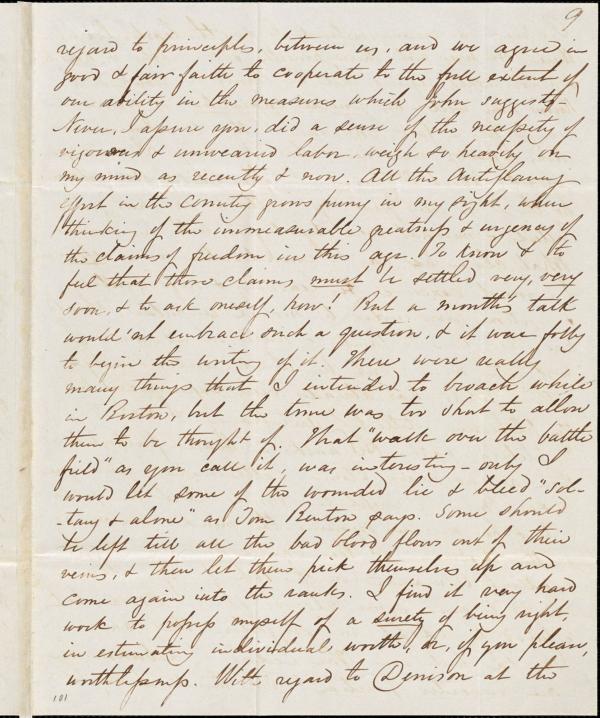 9
regard to principles, between us, and we agree in
good & fair faith to cooperate to the full extent of
our ability in the measures which John suggests -
Never, I assure you, did a sense of the necessity of
vigorous & unwearied labor, weigh so heavily on
my mind as recently & now. All the Antislavery
effort in the country grows puny in my sight, when
thinking of the immeasurable greatness & urgency of
the claims of freedom in this age. To know & to
feel that those claims must be settled very, very
soon, & to ask oneself, how! But a month's talk
would'nt embrace such a question, & it were folly
to begin the writing of it. There were really
many things that I intended to broach while
in Boston, but the time was too short to allow
them to be thought of. That "walk over the battle
field" as you call it, was interesting - only I
would let some of the wounded lie & bleed "sol-
-tary & alone" as Tom Benton says. Some should
be left till all the bad blood flows out of their
veins, & then let them pick themselves up and
come again into the ranks. I find it very hard
work to possess myself of a surety of being right,
in estimating individual worth, or, if you please,
worthlessness. With regard to Denison at the
101